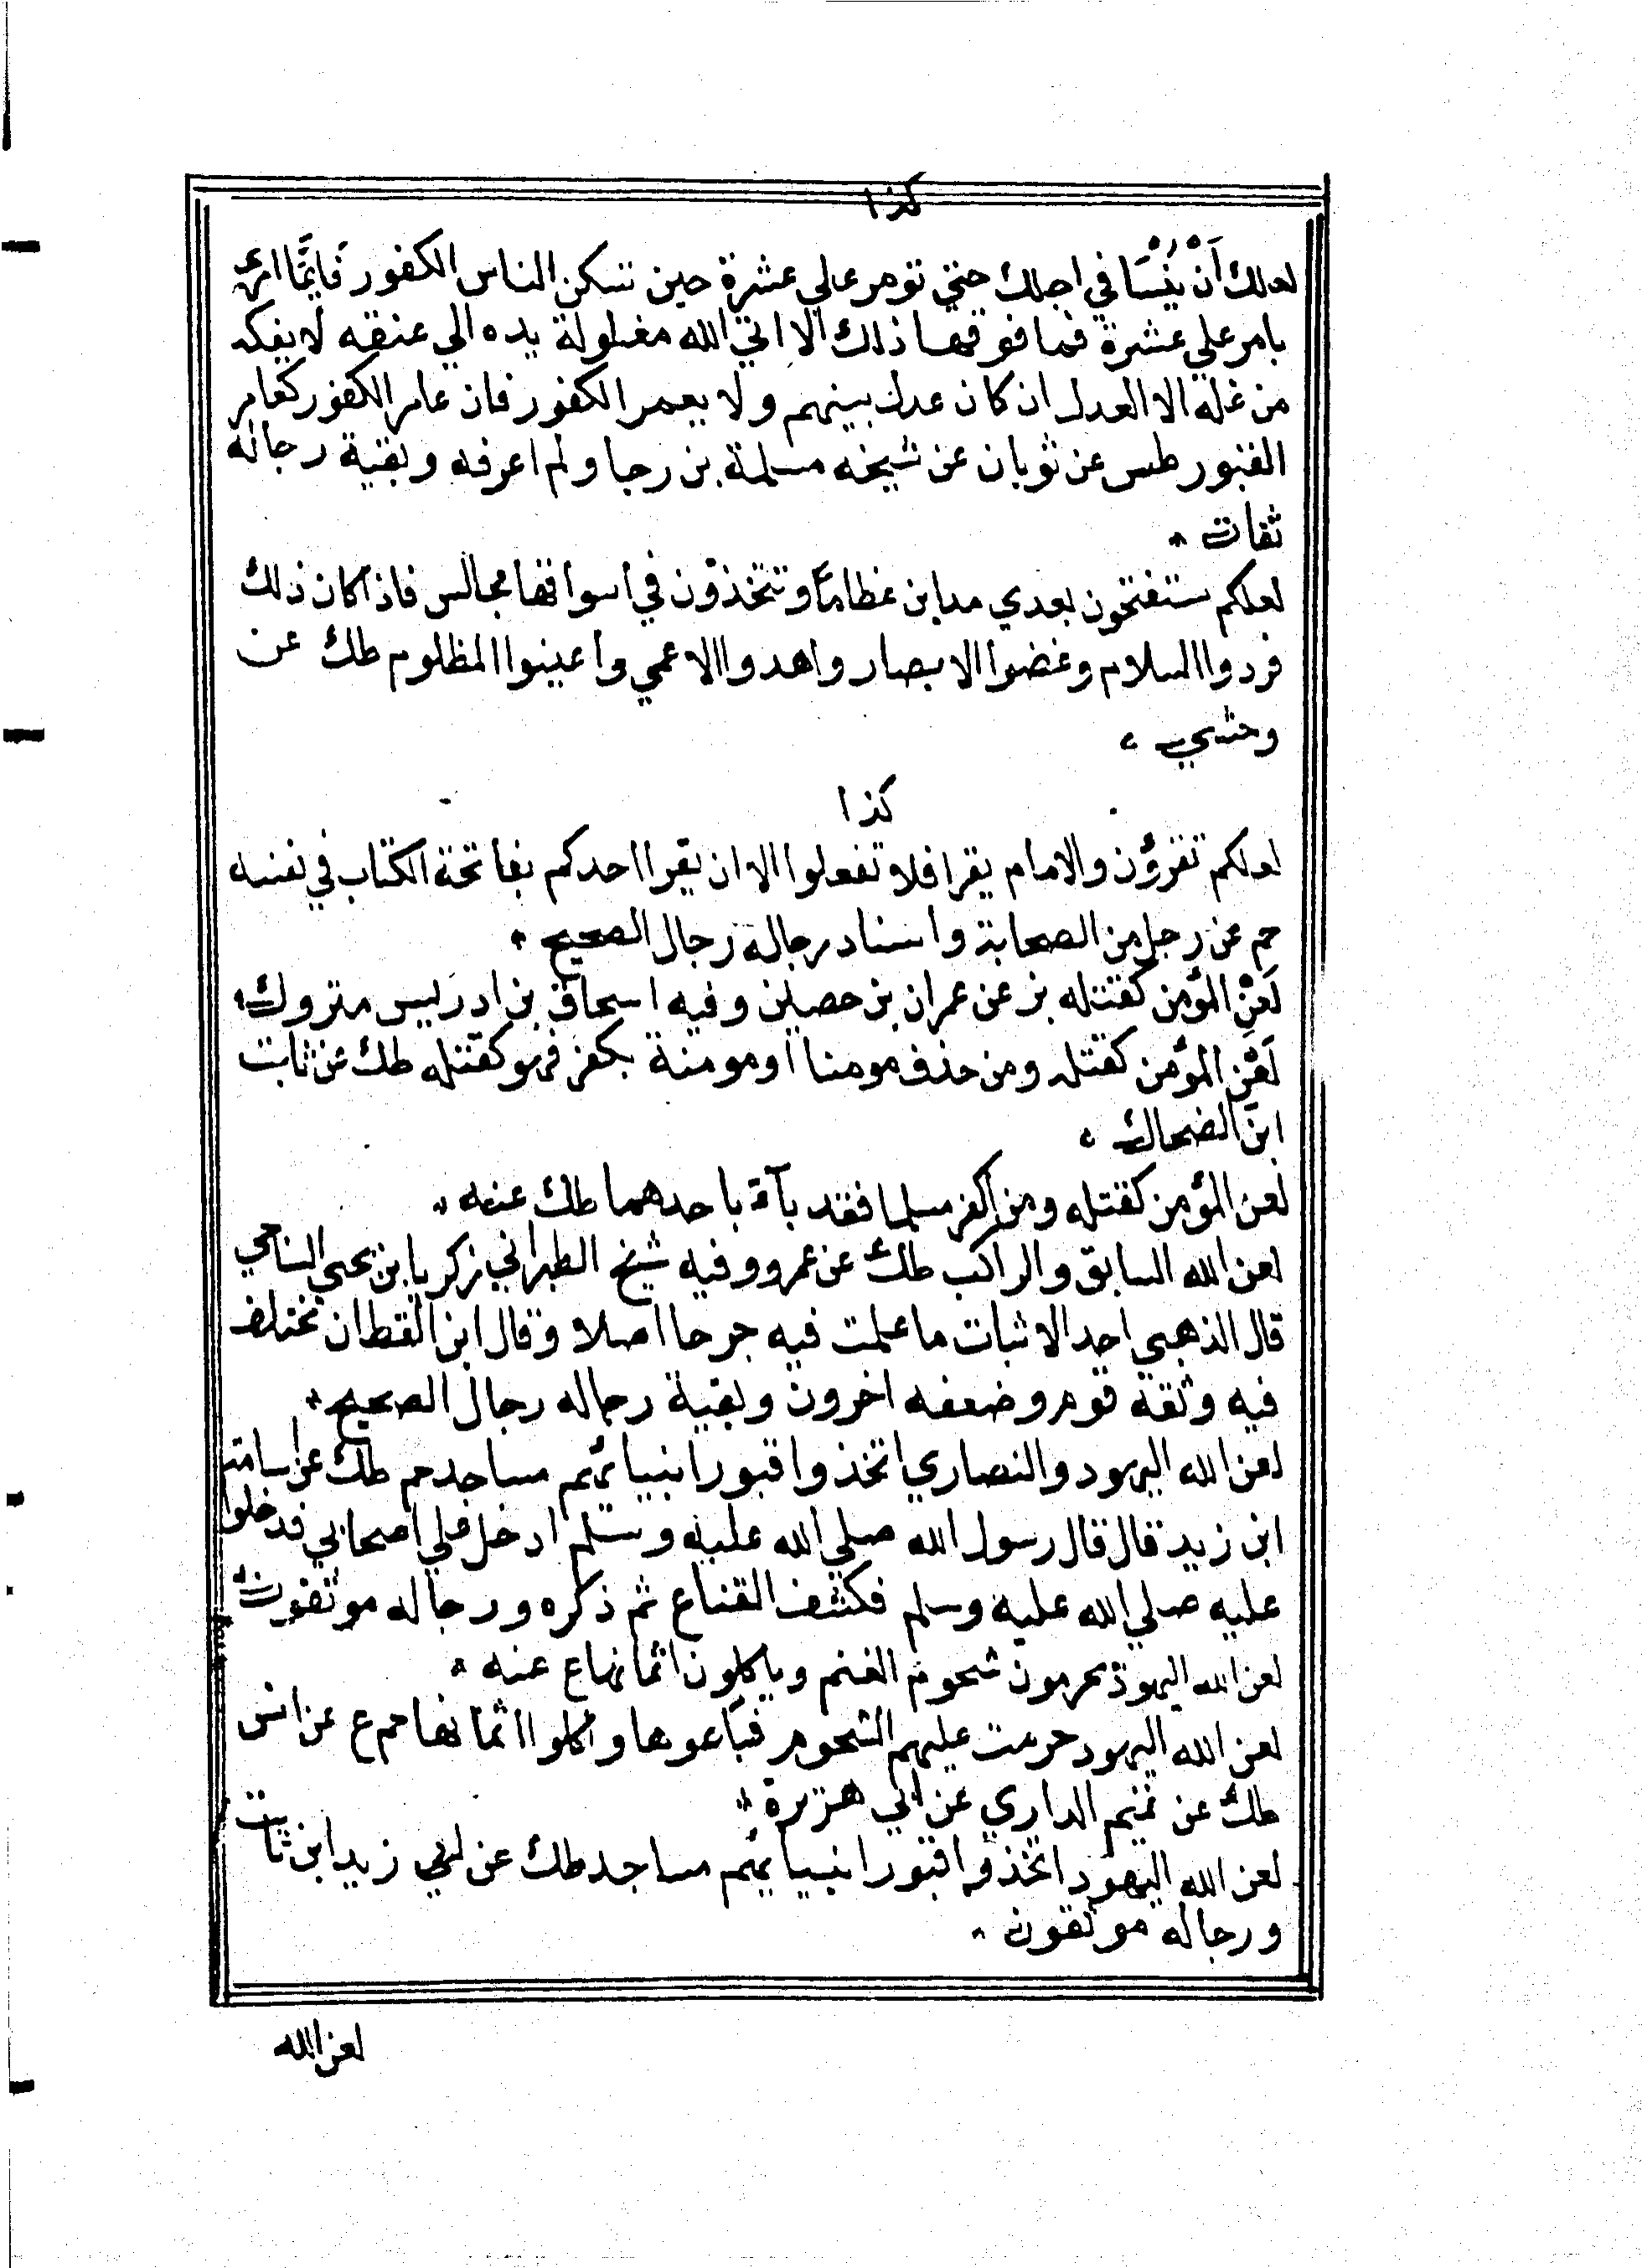 كذا
لعلك أَنْ يُنْسَا في اجلك حتي تومر علي عشرة حين تسكن الناس الكفور فَايَّمَا امرئ
يامر علي عشرة فما فوقها ذلك الا اتي الله مغلولة يده الي عنقه لا يفكه
من غله الا العدل ان كان عدل بينهم ولا يعمر الكفور فان عامر الكفور كعامر
القبور طس عن ثوبان عن شيخه مسلمة بن رجا ولم اعرفه وبقية رجاله
ثقات
لعلكم ستفتحون بعدي مداين عظامًا وتتخذون في اسواقها مجالس فاذا كان ذلك
فردوا السلام وغضوا الابصار واهدوا الاعمي واعينوا المظلوم طك عن
وحشي
كذا
لعلكم تقرؤن والامام يقرا فلا تفعلوا الا ان يقرا احدكم بفاتحة الكتاب في نفسه
حم عن رجل من الصحابة واسناد رجاله رجال الصحيح
لَعْن المؤمن كقتله بز عن عمران بن حصين وفيه اسحاق بن ادريس متروك
لَعْن المؤمن كقتله ومن حذف مومنا اومومنة بكفر فهو كقتله طك عن ثابت
ابن الضحاك
لعن المؤمن كقتله ومن اكفر مسلما فقد بآء باحدهما طك عنه
لعن الله السابق والراكب طك عن عمرو وفيه شيخ الطبراني زكريا بن يحيي الساجي
قال الذهبي احد الاثبات ما علمت فيه جرحا اصلا وقال ابن القطان مختلف
فيه وثقه قوم وضعفه اخرون وبقية رجاله رجال الصحيح
لعن الله اليهود والنصاري اتخذوا قبور انبيائهم مساجد حم طك عن اسامة
ابن زيد قال قال رسول الله صلي الله عليه وسلم ادخل علي اصحابي فدخلوا
عليه صلي الله عليه وسلم فكشف القناع ثم ذكره ورجاله موثقون
لعن الله اليهود يحرمون شحوم الغنم وياكلون اثمانها ع عنه
لعن الله اليهود حرمت عليهم الشحوم فباعوها واكلوا اثمانها حم ع عن انس
طك عن تميم الداري عن ابي هريرة
لعن الله اليهود اتخذوا قبور انبيائهم مساجد طك عن ابي زيد ابن ثابت
ورجاله موثقون
لعن الله